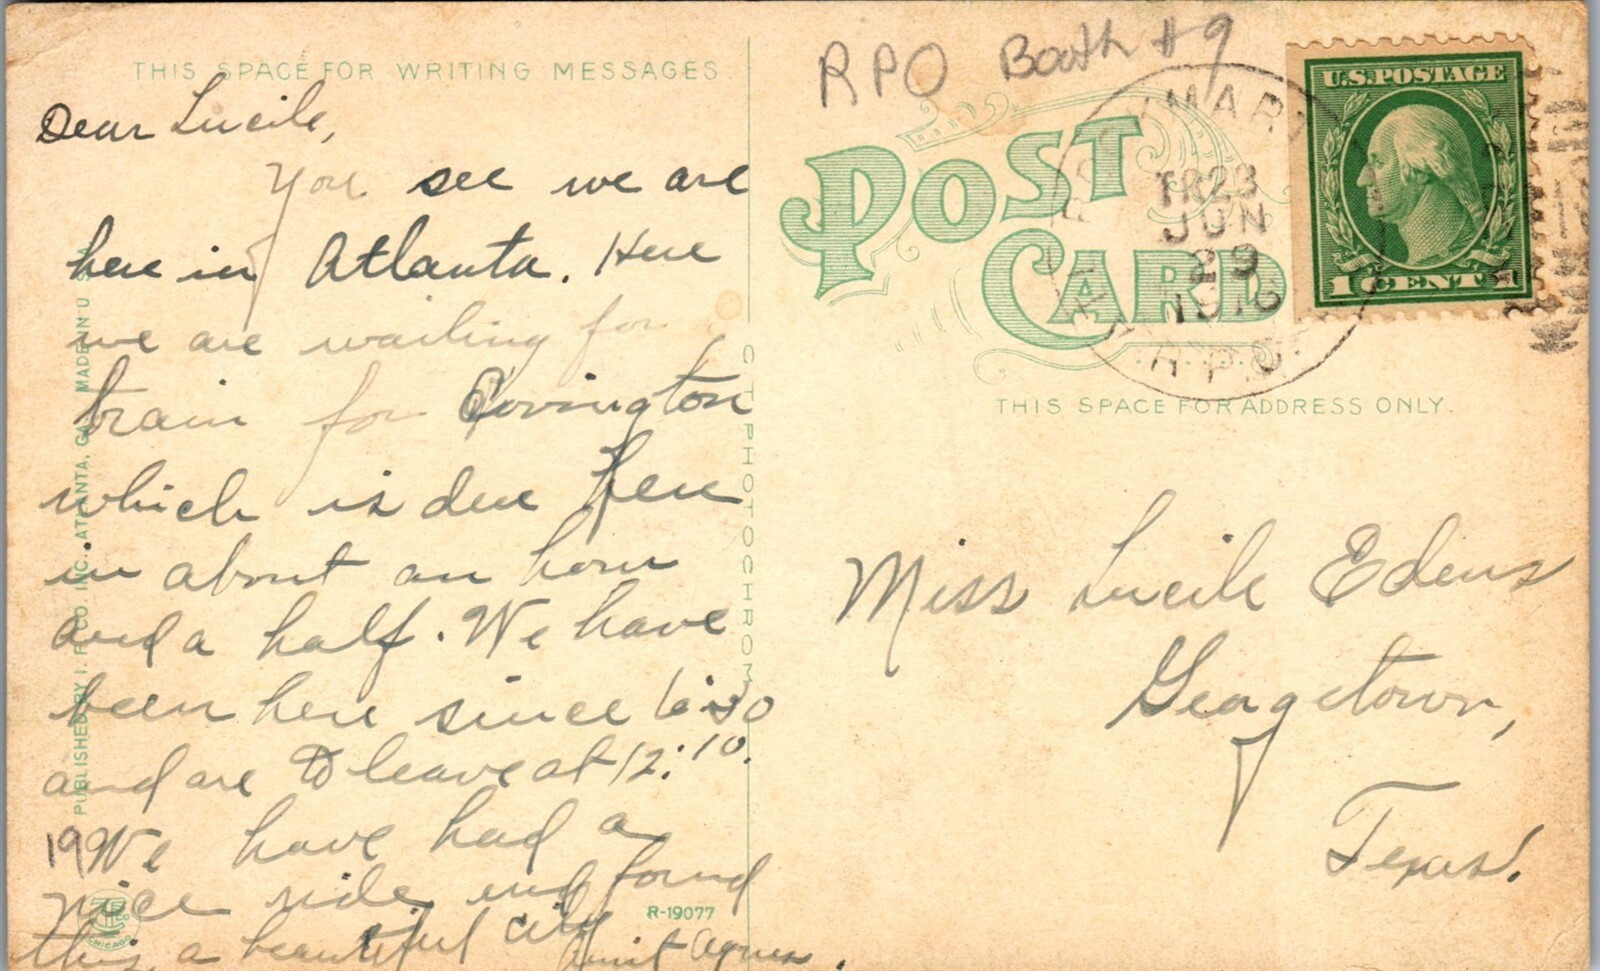 THIS SPACE FOR WRITING MESSAGES
Dear Lucile,
You see we are
here in Atlanta. Here
we are waiting for
train for Covington
which is due here
in about an hour
and a half. We have
been here since 6:30
and are to leave at 12:10.
We have had a
nice ride and found
this a beautiful city
Aunt Agnes.
19
PUBLISHED BY I. F. CO. INC., ATLANTA, GA. MADE IN U S A
CHICAGO
R-19077
C T PHOTOCHROM
RPO Booth #9
POST
CARD
TR 23
JUN
29
1916
R.P.O.
U.S. POSTAGE
1 CENT 1
THIS SPACE FOR ADDRESS ONLY.
Miss Lucile Edens
Georgetown,
Texas.